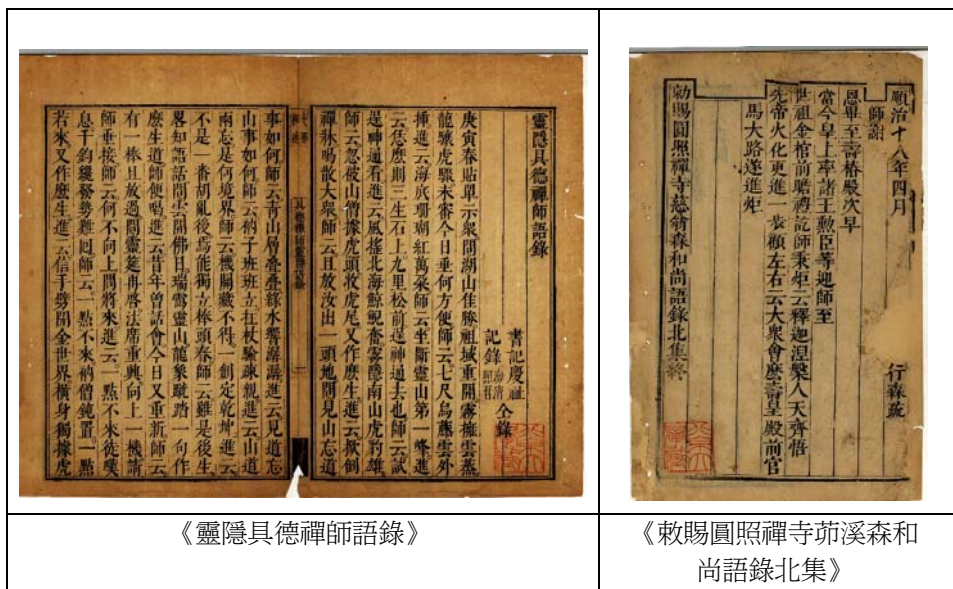 靈隱具德禪師語錄
書記慶祉
記錄
仝錄
庚寅春貼單示衆問湖山佳勝祖域重開霧擁雲蒸
龍驤虎驟未審今日垂何方便師云七尺烏藤雲外
捶進云海底珊瑚紅萬朶師云坐斷靈山第一峰進
云恁麽則三生石上九里松前逞神通去也師云試
逞神通看進云風搖北海鯨鯢奮霧隱南山虎豹雄
師云忽被山僧據虎頭收虎尾又作麽生進云掀倒
禪牀喝散大衆師云且放汝出一頭地問見山忘道
事如何師云靑山層疊疊綠水響潺潺進云見道忘
山事如何師云衲子班班立拄杖驗疎親進云山道
兩忘是何境界師云機關藏不得一創定乾坤進云
不是一番胡亂後焉能獨立棒頭春師云雖是後生
畧知語話問雲開佛日瑞靄靈山龍象蹴踏一句作
麽生道師便喝進云昔年曾話會今日又重新師云
有一棒且放過問靈筵再啓法席重興向上一機請
師垂接師云何不向上問將來進云一點不來徒嘆
息千鈞纔發勢難囘師云一點不來衲僧鈍置一點
若來又作麽生進云信手劈開金世界橫身獨據虎
順治十八年四月 行森疏
師謝
恩畢至壽椿殿次早
當今皇上率諸王勲臣等迎師至
世祖金棺前瞻禮訖師秉炬云釋迦涅槃人天齊悟
先帝火化更進一裟顧左右云大衆會麽壽皇殿前官
馬大路遂進炬
勅賜圓照禪寺慈翁森和尚語錄北集終
《靈隱具德禪師語錄》
《敕賜圓照禪寺茆溪森和
尚語錄北集》